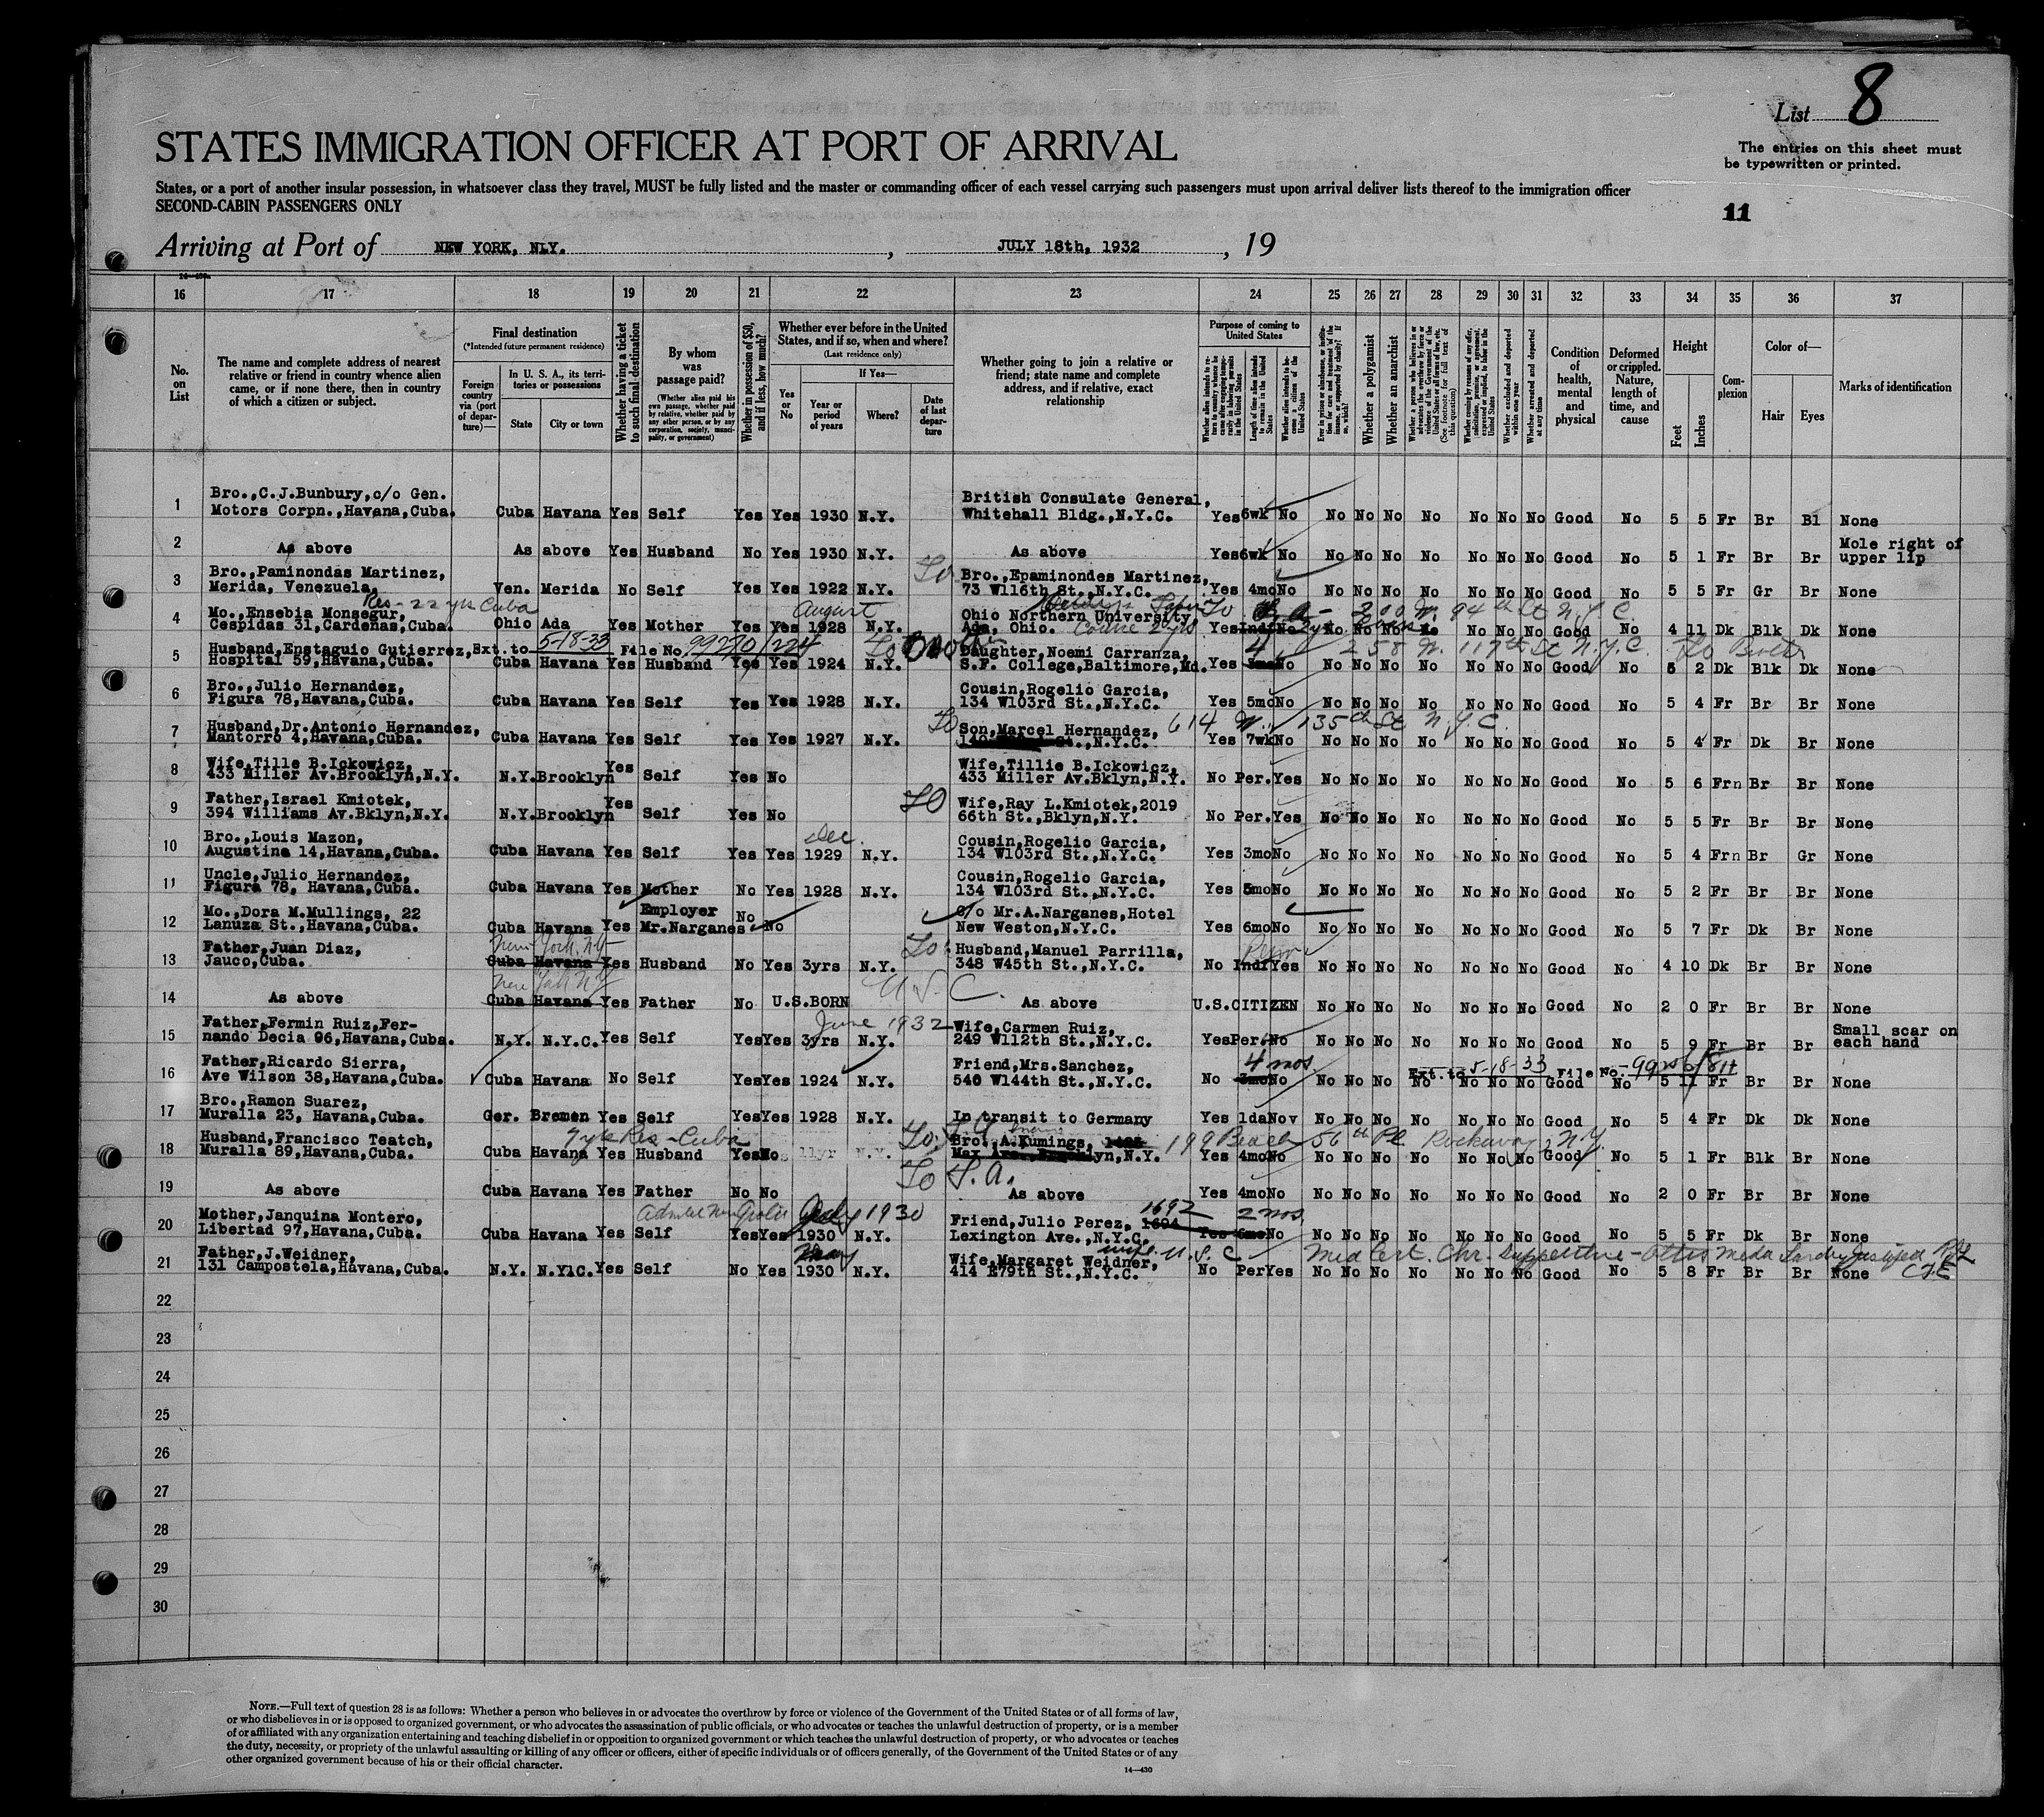 List 8
STATES IMMIGRATION OFFICER AT PORT OF ARRIVAL
The entries on this sheet must
be typewritten or printed.
States, or a port of another insular possession, in whatsoever class they travel, MUST be fully listed and the master or commanding officer of each vessel carrying such passengers must upon arrival deliver lists thereof to the immigration officer
SECOND-CABIN PASSENGERS ONLY
11
Arriving at Port of NEW YORK, NLY. , JULY 18th, 1932 , 19
16 17 18 19 20 21 22 23 24 25 26 27 28 29 30 31 32 33 34 35 36 37
No. on List
The name and complete address of nearest relative or friend in country whence alien came, or if none there, then in country of which a citizen or subject.
Final destination
(*Intended future permanent residence)
Foreign country via (port of departure)—
In U. S. A., its territories or possessions
State
City or town
Whether having a ticket to such final destination
By whom was passage paid?
(Whether alien paid his own passage, whether paid by relative, whether paid by any other person, or by any corporation, society, municipality, or government)
Whether in possession of $50, and if less, how much?
Whether ever before in the United States, and if so, when and where?
(Last residence only)
Yes or No
If Yes—
Year or period of years
Where?
Date of last departure
Whether going to join a relative or friend; state name and complete address, and if relative, exact relationship
Purpose of coming to United States
Length of time alien intends to remain in the United States
Whether alien intends to become a citizen of the United States
Whether a polygamist
Whether an anarchist
Condition of health, mental and physical
Deformed or crippled. Nature, length of time, and cause
Height
Feet
Inches
Complexion
Color of—
Hair
Eyes
Marks of identification
1 Bro.,C.J.Bunbury,c/o Gen. British Consulate General,
Motors Corpn.,Havana,Cuba. Cuba Havana Yes Self Yes Yes 1930 N.Y. Whitehall Bldg.,N.Y.C. Yes 6wk No No No No No No No No No Good No 5 5 Fr Br Bl None
2 As above As above Yes Husband No Yes 1930 N.Y. As above Yes 6wk No No No No No No No No Good No 5 1 Fr Br Br Mole right of upper lip
3 Bro.,Paminondas Martinez, To Bro.,Epaminondes Martinez,
Merida, Venezuela, Ven. Merida No Self Yes Yes 1922 N.Y. 73 W116th St.,N.Y.C. Yes 4mo No No No No No No No No Good No 5 5 Fr Gr Br None
Res - 22 yrs Cuba August
4 Mo.,Ensebia Monsegur, Ohio Northern University, 200 W. 94th St N.Y.C.
Cespidas 31,Cardenas,Cuba. Ohio Ada Yes Mother Yes Yes 1928 N.Y. Ada, Ohio. Course 2yrs Yes Indf No No No No No No No No Good No 4 11 Dk Blk Dk None
5 Husband,Enstaguio Gutierrez, Ext. to 5-18-33 File No. 99270/224 Daughter,Noemi Carranza, 4 258 W. 117th St N.Y.C.
Hospital 59,Havana,Cuba. Cuba Havana Yes Husband Yes Yes 1924 N.Y. S.F. College,Baltimore,Md. Yes 3mo No No No No No No No No Good No 5 2 Dk Blk Dk None
6 Bro.,Julio Hernandez, Cousin,Rogelio Garcia,
Figura 78,Havana,Cuba. Cuba Havana Yes Self Yes Yes 1928 N.Y. 134 W103rd St.,N.Y.C. Yes 5mo No No No No No No No No Good No 5 4 Fr Br Br None
7 Husband,Dr.Antonio Hernandez, To Son,Marcel Hernandez, 614 W. 135th St N.Y.C.
Mantorro 4,Havana,Cuba. Cuba Havana Yes Self Yes Yes 1927 N.Y. St.,N.Y.C. Yes 7wk No No No No No No No No Good No 5 4 Fr Dk Br None
8 Wife,Tille B.Ickowicz, Wife,Tillie B.Ickowicz,
433 Miller Av.Brooklyn,N.Y. N.Y. Brooklyn Yes Self Yes No 433 Miller Av.Bklyn,N.Y. No Per. Yes No No No No No No No Good No 5 6 Frn Br Br None
9 Father,Israel Kmiotek, To Wife,Ray L.Kmiotek,2019
394 Williams Av.Bklyn,N.Y. N.Y. Brooklyn Yes Self Yes No 66th St.,Bklyn,N.Y. No Per. Yes No No No No No No No Good No 5 5 Fr Br Br None
10 Bro.,Louis Mazon, Dec. Cousin,Rogelio Garcia,
Augustina 14,Havana,Cuba. Cuba Havana Yes Self Yes Yes 1929 N.Y. 134 W103rd St.,N.Y.C. Yes 3mo No No No No No No No No Good No 5 4 Frn Br Gr None
11 Uncle,Julio Hernandez, Cousin,Rogelio Garcia,
Figura 78, Havana,Cuba. Cuba Havana Yes Mother No Yes 1928 N.Y. 134 W103rd St.,N.Y.C. Yes 5mo No No No No No No No No Good No 5 2 Fr Br Br None
12 Mo.,Dora M.Mullings, 22 Employer No c/o Mr.A.Narganes,Hotel
Lanuza St.,Havana,Cuba. Cuba Havana Yes Mr.Narganes No New Weston,N.Y.C. Yes 6mo No No No No No No No No Good No 5 7 Fr Dk Br None
13 Father,Juan Diaz, New York, N.Y. To Husband,Manuel Parrilla,
Jauco,Cuba. Cuba Havana Yes Husband No Yes 3yrs N.Y. 348 W45th St.,N.Y.C. No Indf Yes No No No No No No No Good No 4 10 Dk Br Br None
New York N.Y.
14 As above Cuba Havana Yes Father No U.S.BORN U.S.C. As above U.S.CITIZEN No No No No No No No Good No 2 0 Fr Br Br None
15 Father,Fermin Ruiz,Fer- June 1932 Wife,Carmen Ruiz, Small scar on
nando Decia 96,Havana,Cuba. N.Y. N.Y.C. Yes Self Yes Yes 3yrs N.Y. 249 W112th St.,N.Y.C. Yes Per. No No No No No No No No Good No 5 9 Fr Br Br each hand
16 Father,Ricardo Sierra, Friend,Mrs.Sanchez, 4 mos. Ext. to 5-18-33 File No.
Ave Wilson 38,Havana,Cuba. Cuba Havana No Self Yes Yes 1924 N.Y. 540 W144th St.,N.Y.C. No 3mo No No No No No No No No Good No 5 11 Fr Br Br None
17 Bro.,Ramon Suarez,
Muralla 23, Havana,Cuba. Ger. Bremen Yes Self Yes Yes 1928 N.Y. In transit to Germany Yes 1da No No No No No No No No Good No 5 4 Fr Dk Dk None
18 Husband,Francisco Teatch, 7 yrs Res - Cuba To Bro. A.Kumings, 199 Beach 56th Pl. Rockaway, N.Y.
Muralla 89,Havana,Cuba. Cuba Havana Yes Husband Yes No 11yr N.Y. N.Y. Yes 4mo No No No No No No No No Good No 5 1 Fr Blk Br None
To S.A.
19 As above Cuba Havana Yes Father No No As above Yes 4mo No No No No No No No No Good No 2 0 Fr Br Br None
20 Mother,Janquina Montero, July 1930 Friend,Julio Perez, 1692 2 mos.
Libertad 97,Havana,Cuba. Cuba Havana Yes Self Yes Yes 1930 N.Y. Lexington Ave.,N.Y.C. Yes 6mo No No No No No No No No Good No 5 5 Fr Dk Br None
21 Father,J.Weidner, May Wife,Margaret Weidner, wife U.S.C. Med Cert. Chr. Suppurative Otitis Media
131 Campostela,Havana,Cuba. N.Y. N.Y1C. Yes Self No Yes 1930 N.Y. 414 E79th St.,N.Y.C. No Per Yes No No No No No No No Good No 5 8 Fr Br Br None
22
23
24
25
26
27
28
29
30
NOTE.—Full text of question 28 is as follows: Whether a person who believes in or advocates the overthrow by force or violence of the Government of the United States or of all forms of law,
or who disbelieves in or is opposed to organized government, or who advocates the assassination of public officials, or who advocates or teaches the unlawful destruction of property, or is a member
of or affiliated with any organization entertaining and teaching disbelief in or opposition to organized government or which teaches the unlawful destruction of property, or who advocates or teaches
the duty, necessity, or propriety of the unlawful assaulting or killing of any officer or officers, either of specific individuals or of officers generally, of the Government of the United States or of any
other organized government because of his or their official character.
14—430